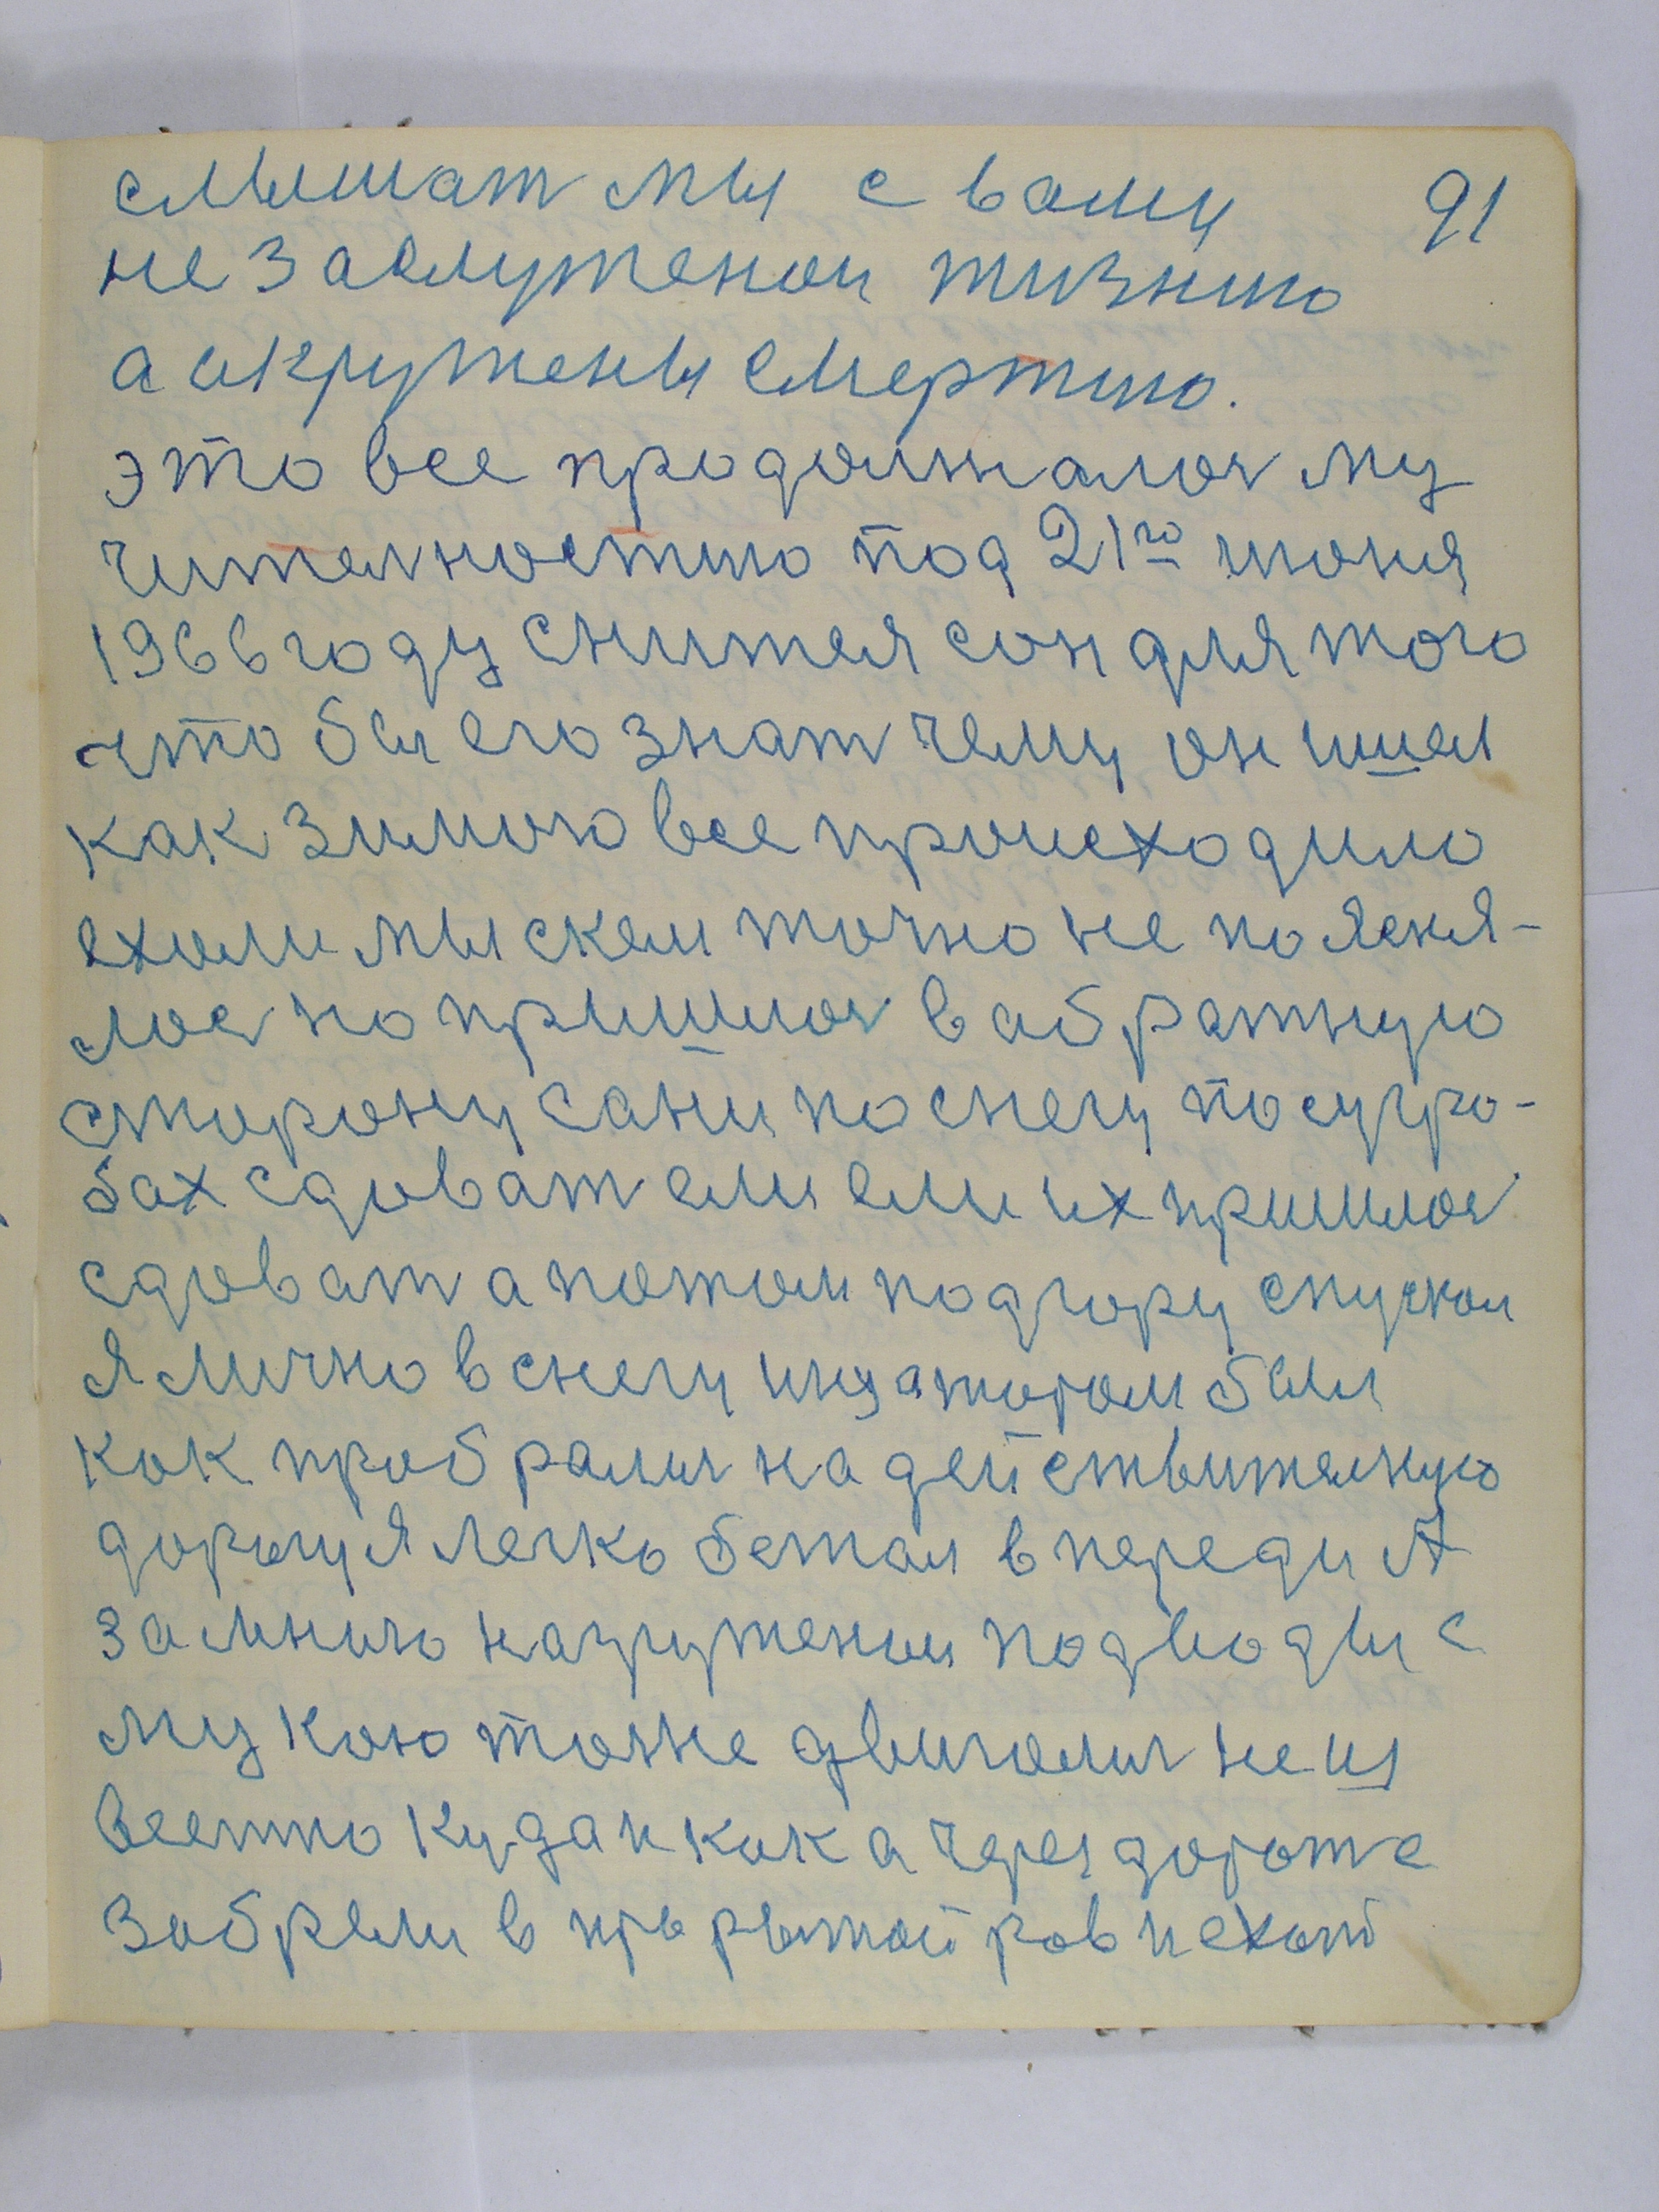 слышат мы с вами 91
не заслуженои жизнию
а акружены смертию.
это все продолжалос му
чителностию под 21го июня
1966 году снится сон для того
что бы его знат чему он ишел
как зимою все происходило
ехали мы скем точно не поясня-
лос но пришлос в абратную
сторону сани по снегу по сугро-
бах здават ели ели их пришлос
здават а потом под гору спускои
я лично в снегу был
как пробралис на действителную
дорогу я легко бежал в переди А
за мною нагружении подводы с
мукою тоже двигалис не из
весно куда и как а через дорогаже
забрели в прарытой ров пехот